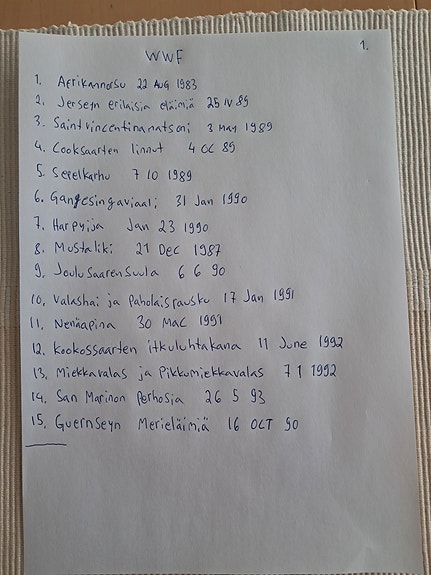 1.
WWF
1. Afrikannorsu 22 AUG 1983
2. Jerseyn erilaisia eläimiä 25 IV 89
3. Saintvincentinamatsoni 3 May 1989
4. Cooksaarten linnut 4 OC 89
5. Seeelkarhu 7 10 1989
6. Gangesingaviaali 31 Jan 1990
7. Harpyija Jan 23 1990
8. Mustaliki 21 Dec 1987
9. Joulusaarensuula 6 6 90
10. Valashai ja paholaisrausku 17 Jan 1991
11. Nenäapina 30 Mac 1991
12. Kookossaarten itkuluhtakana 11 June 1992
13. Miekkavalas ja Pikkumiekkavalas 7 1 1992
14. San Marinon Perhosia 26 5 93
15. Guernseyn Merieläimiä 16 OCT 90